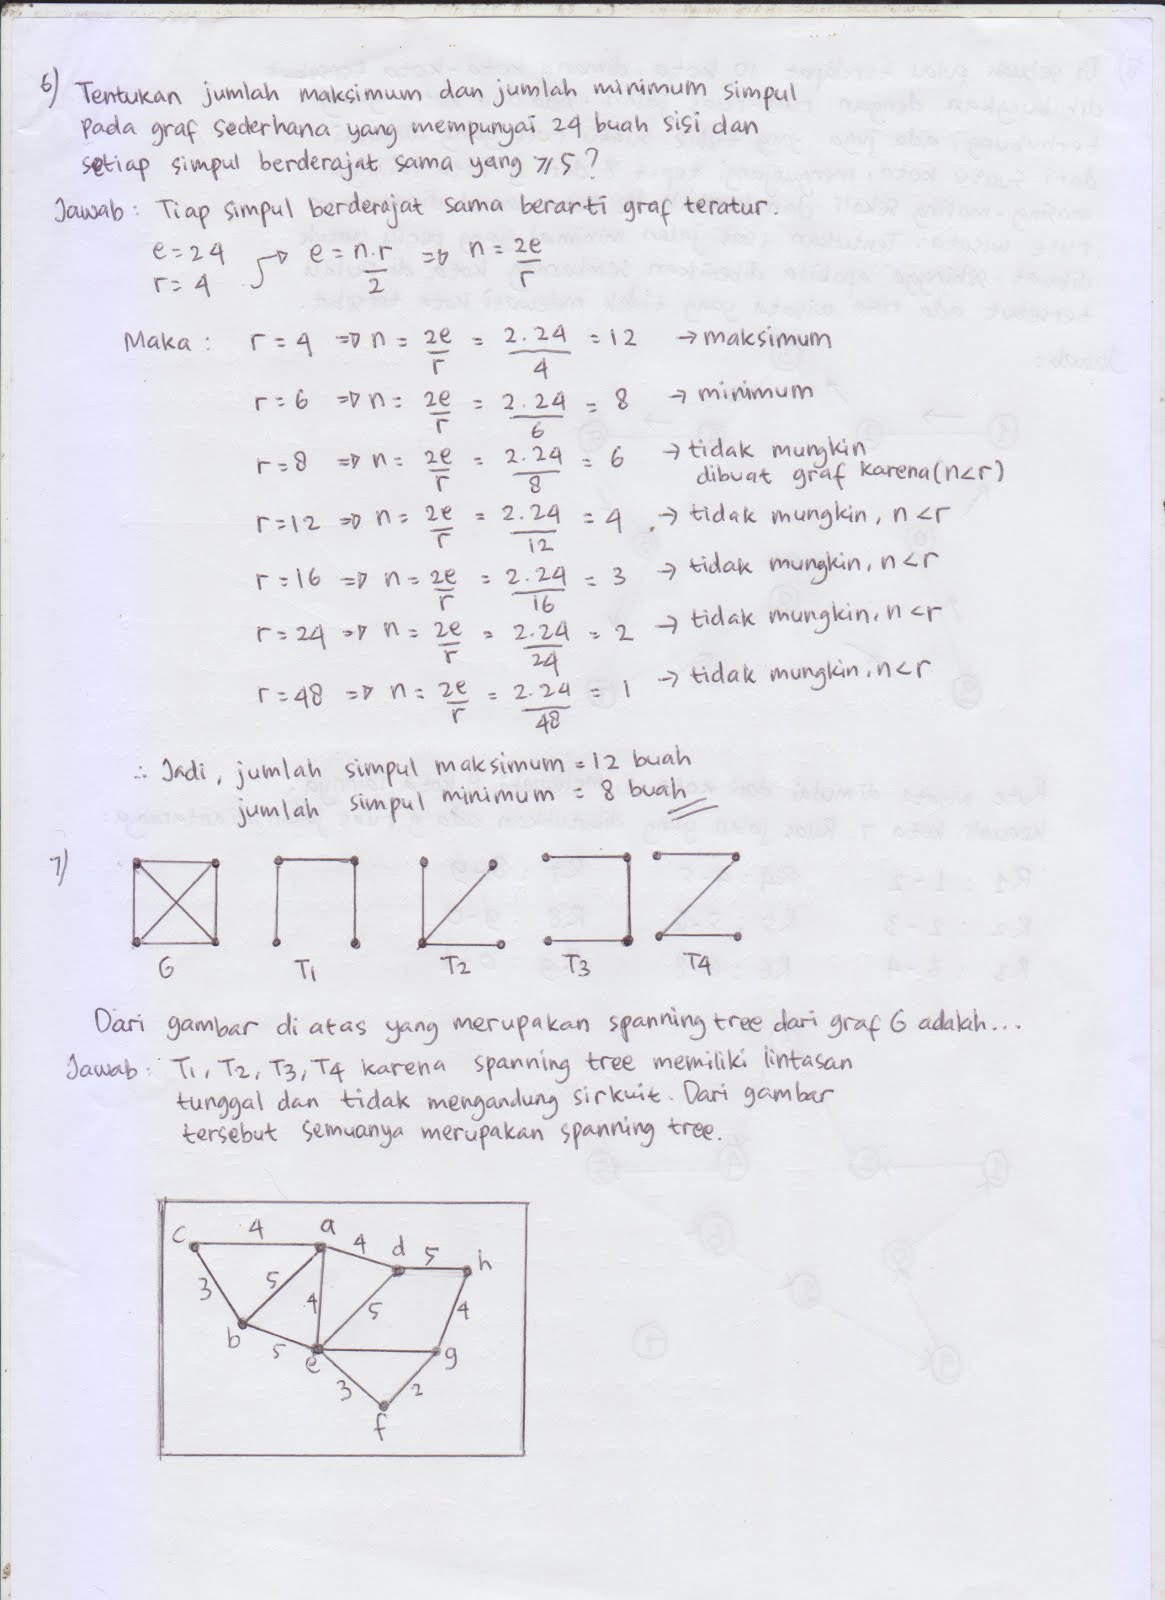 6) Tentukan jumlah maksimum dan jumlah minimum simpul
pada graf sederhana yang mempunyai 24 buah sisi dan
setiap simpul berderajat sama yang ≥5?
Jawab: Tiap simpul berderajat sama berarti graf teratur.
e = 24 → e = n.r/2 => n = 2e/r
r = 4
Maka: r = 4 => n = 2e/r = 2.24/4 = 12 → maksimum
r = 6 => n = 2e/r = 2.24/6 = 8 → minimum
r = 8 => n = 2e/r = 2.24/8 = 6 → tidak mungkin
dibuat graf karena (n<r)
r = 12 => n = 2e/r = 2.24/12 = 4 → tidak mungkin, n<r
r = 16 => n = 2e/r = 2.24/16 = 3 → tidak mungkin, n<r
r = 24 => n = 2e/r = 2.24/24 = 2 → tidak mungkin, n<r
r = 48 => n = 2e/r = 2.24/48 = 1 → tidak mungkin, n<r
∴ Jadi, jumlah simpul maksimum = 12 buah
jumlah simpul minimum = 8 buah
7)
G T1 T2 T3 T4
Dari gambar di atas yang merupakan spanning tree dari graf G adalah...
Jawab: T1, T2, T3, T4 karena spanning tree memiliki lintasan
tunggal dan tidak mengandung sirkuit. Dari gambar
tersebut semuanya merupakan spanning tree.
c 4 a 4 d 5 h
3 5 4 5 4
b 5 e g
3 2
f